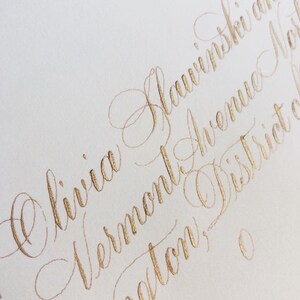 Olivia Slawinski an
Vermont Avenue Nor
ngton, District o